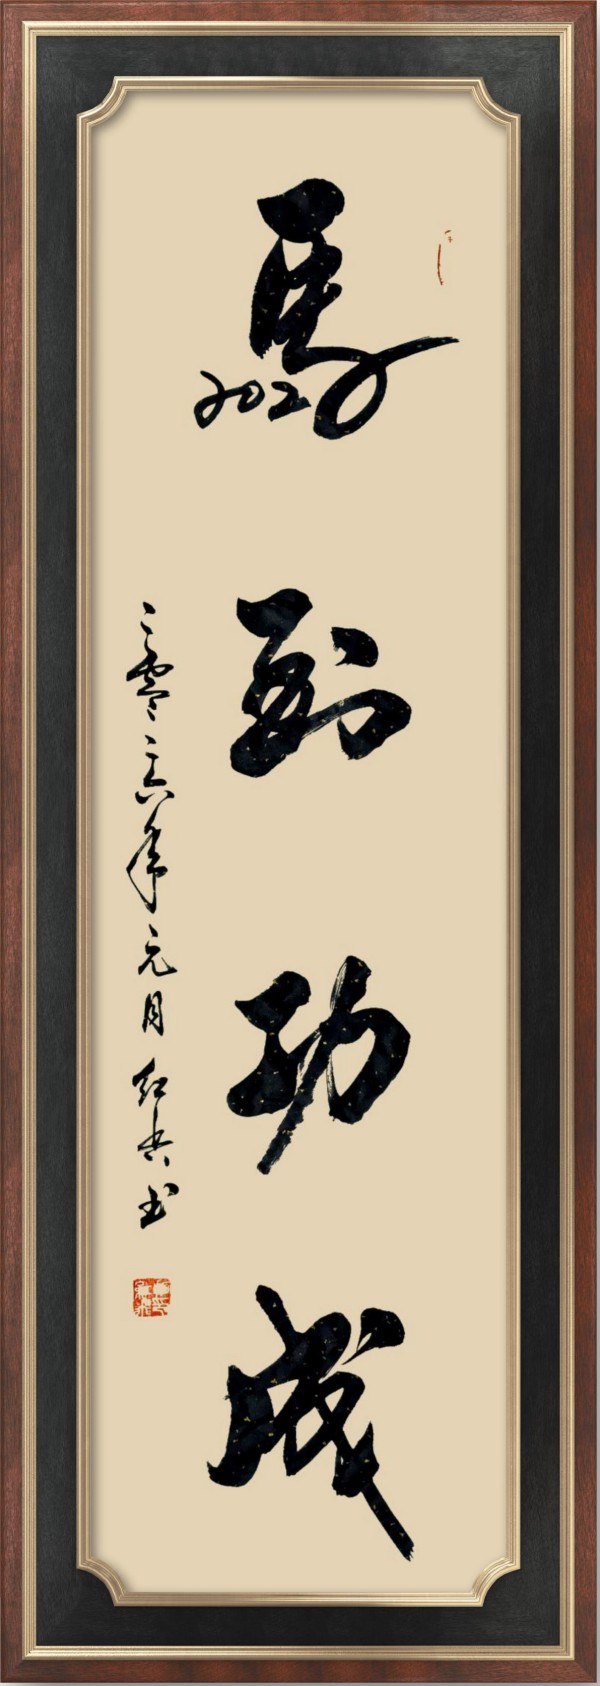 馬到功成
2026
二零二六年元月红兵书